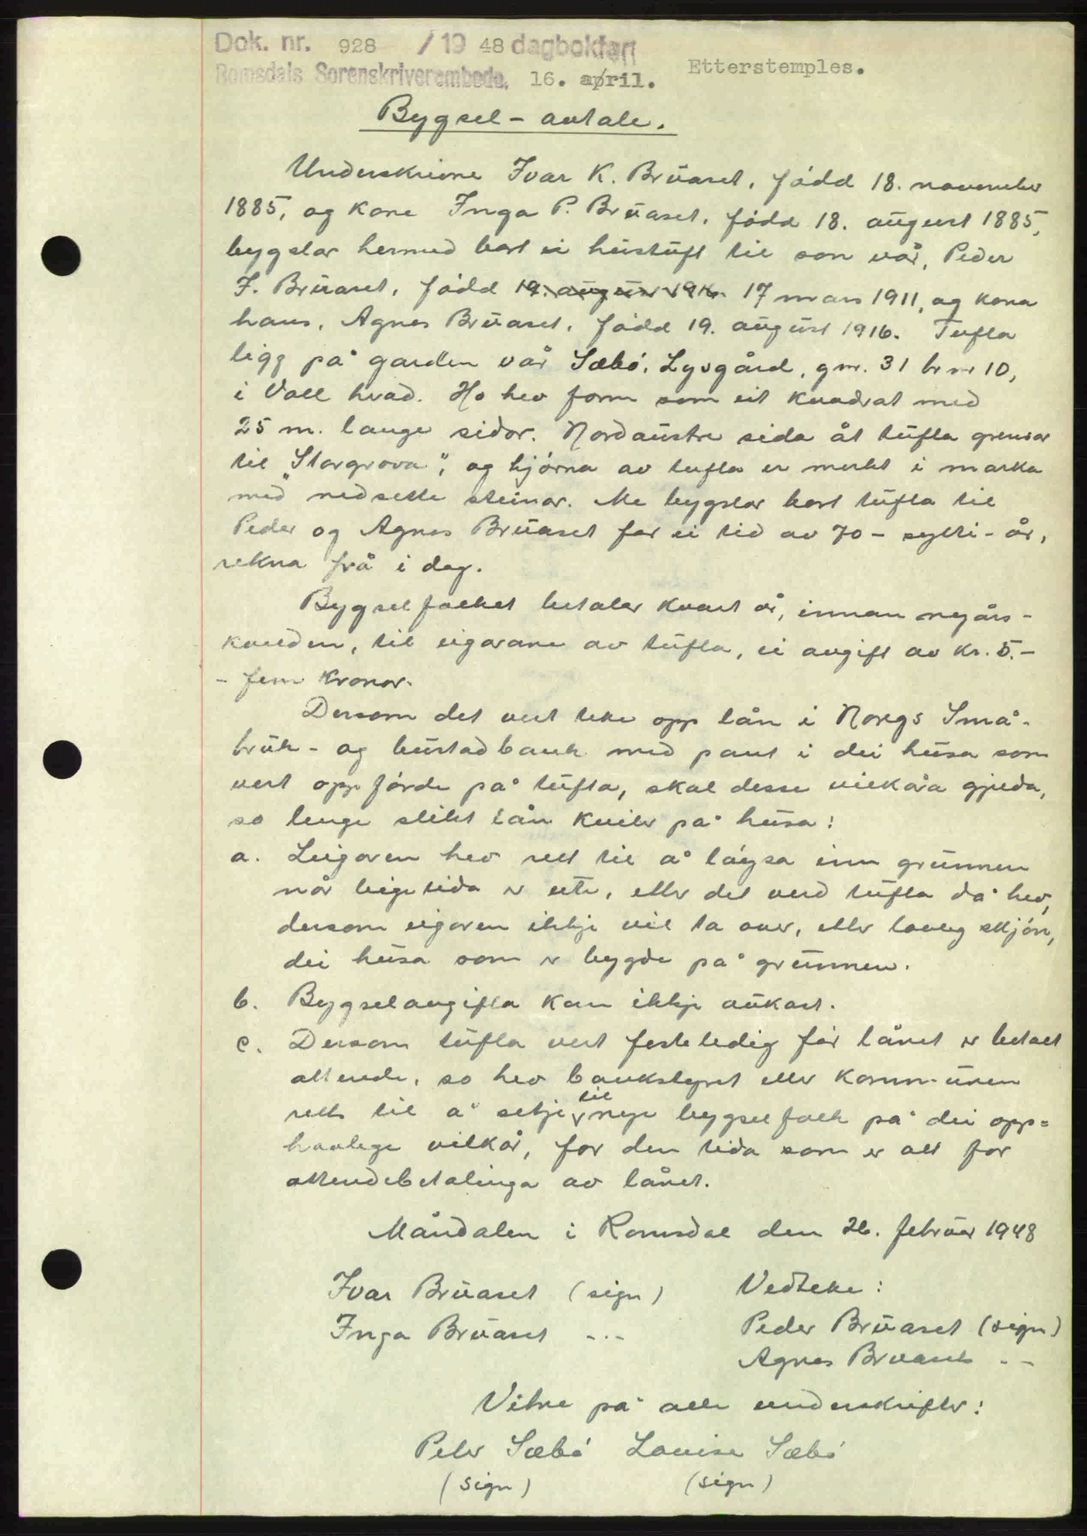 Dok. nr. 928 / 19 48 dagbokført
Romsdals Sorenskriverembede, 16. april. Etterstemples.
Bygsel - avtale.
Underskrivne Ivar K. Brüaset, fødd 18. november
1885, og kone Inga P. Brüaset, fødd 18. august 1885,
bygslar hermed bort ei hustuft til son vår, Peder
I. Brüaset, fødd 19. august 1916. 17 mars 1911, og kona
hans, Agnes Brüaset, fødd 19. august 1916. Tufta
ligg på garden vår Sæbø, Lysgård, gnr. 31 br nr 10,
i Voll herad. Ho hev form som eit kvadrat med
25 m. lange sidor. Nordaustre sida åt tufta grensar
til "Storgrova", og hjørna av tufta er merkt i marka
med nedsette steinar. Me bygslar bort tufta til
Peder og Agnes Brüaset for ei tid av 70 - sytti - år,
rekna frå i dag.
Bygselfolket betaler kvart år, innan nyårs-
kvelden, til eigarane av tufta, ei avgift av kr. 5.-
- fem kronor.
Dersom det vert teke opp lån i Noregs Små-
bruk- og bustadbank med pant i dei husa som
vert oppførde på tufta, skal desse vilkåra gjelda,
so lenge slikt lån kviler på husa:
a. Leigaren hev rett til å løysa inn grunnen
når leigetida er ute, eller det verd tufta då hev,
dersom eigaren ikkje vil ta over, etter lovleg skjøn,
dei husa som er bygde på grunnen.
b. Bygselavgifta kan ikkje aukast.
c. Dersom tufta vert festeledig før lånet er betalt
attende, so hev bankstyret eller kommunen
rett til å setje til nye bygselfolk på dei opp=
havlege vilkår, for den tida som er att for
attendebetalinga av lånet.
Måndalen i Romsdal den 26. februar 1948
Ivar Brüaset (sign) Vedteke:
Inga Brüaset - " - Peder Brüaset (sign)
Agnes Bruaset - -
Vitne på alle underskrifter:
Peter Sæbø Louise Sæbø
(sign) (sign)